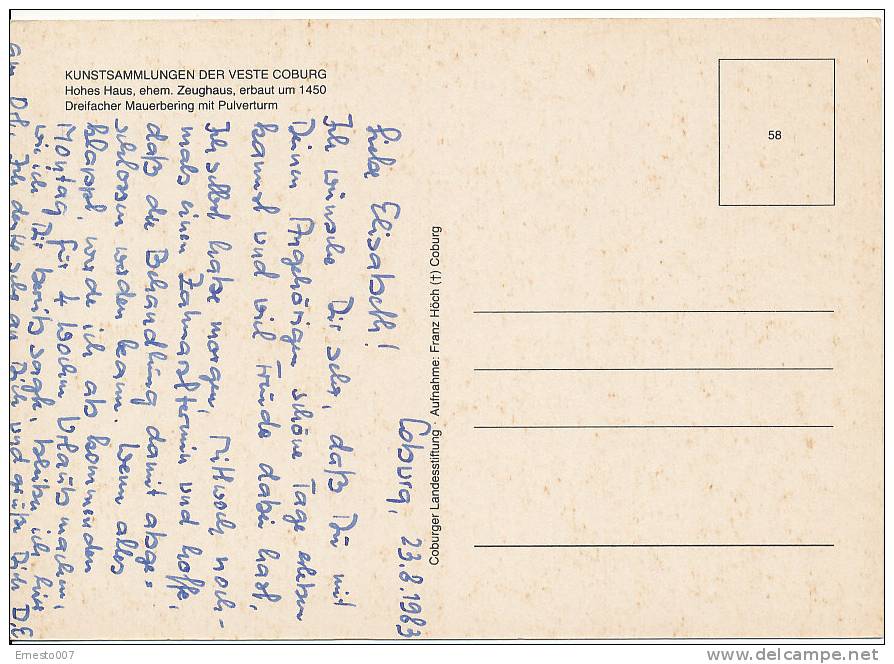 KUNSTSAMMLUNGEN DER VESTE COBURG
Hohes Haus, ehem. Zeughaus, erbaut um 1450
Dreifacher Mauerbering mit Pulverturm
58
Coburger Landesstiftung · Aufnahme: Franz Höch (†) Coburg
Coburg, 23.8.1983
Liebe Elisabeth!
Ich wünsche Dir sehr, daß Du mit
Deinen Angehörigen schöne Tage erleben
kannst und viel Freude dabei hast.
Ich selbst habe morgen, Mittwoch noch-
mals einen Zahnarzttermin und hoffe,
daß die Behandlung damit abge=
schlossen werden kann. Wenn alles
klappt, werde ich ab kommenden
Montag für 4 Wochen Urlaub machen,
wie ich Dir bereits sagte, bleibe ich hier
am Ort. Ich denke sehr an Dich und grüße Dich D.E
Ernesto007
delcampe.net